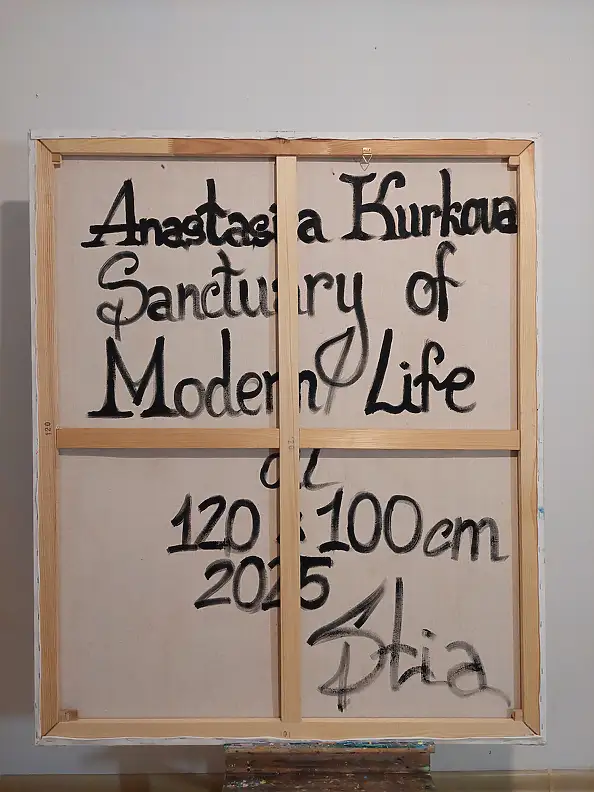 Anastasia Kurkova
Sanctuary of
Modern Life
oil
120 x 100 cm
2025
Stia
120